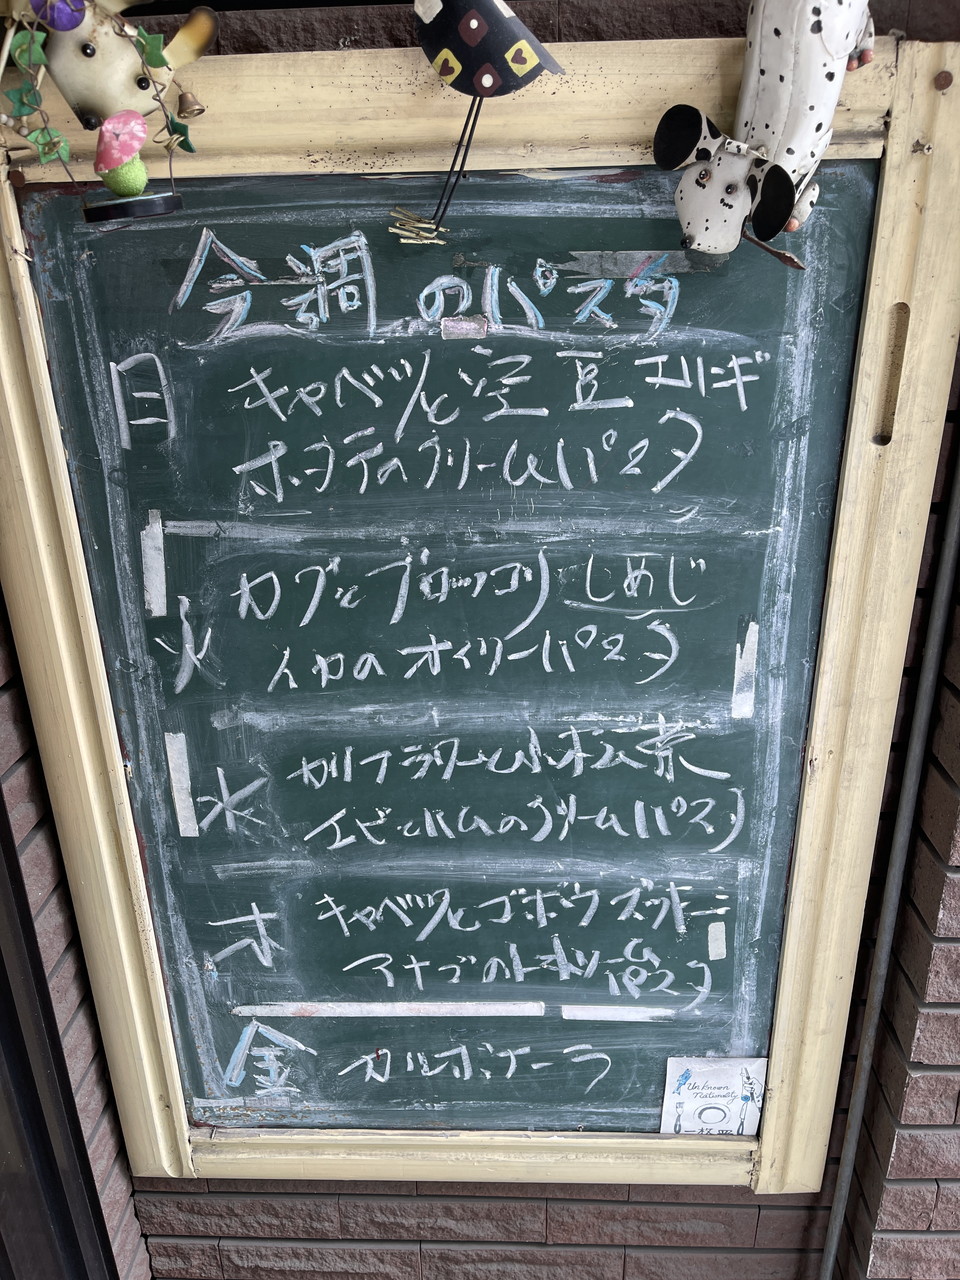 今週のパスタ
月 キャベツと空豆 エリンギ
ホタテのクリームパスタ
火 カブとブロッコリ しめじ
イカのオイリーパスタ
水 カリフラワーと小松菜
エビとハムのクリームパスタ
木 キャベツとゴボウ ズッキーニ
アナゴのトマトクリームパスタ
金 カルボナーラ
Unknown
Nationality